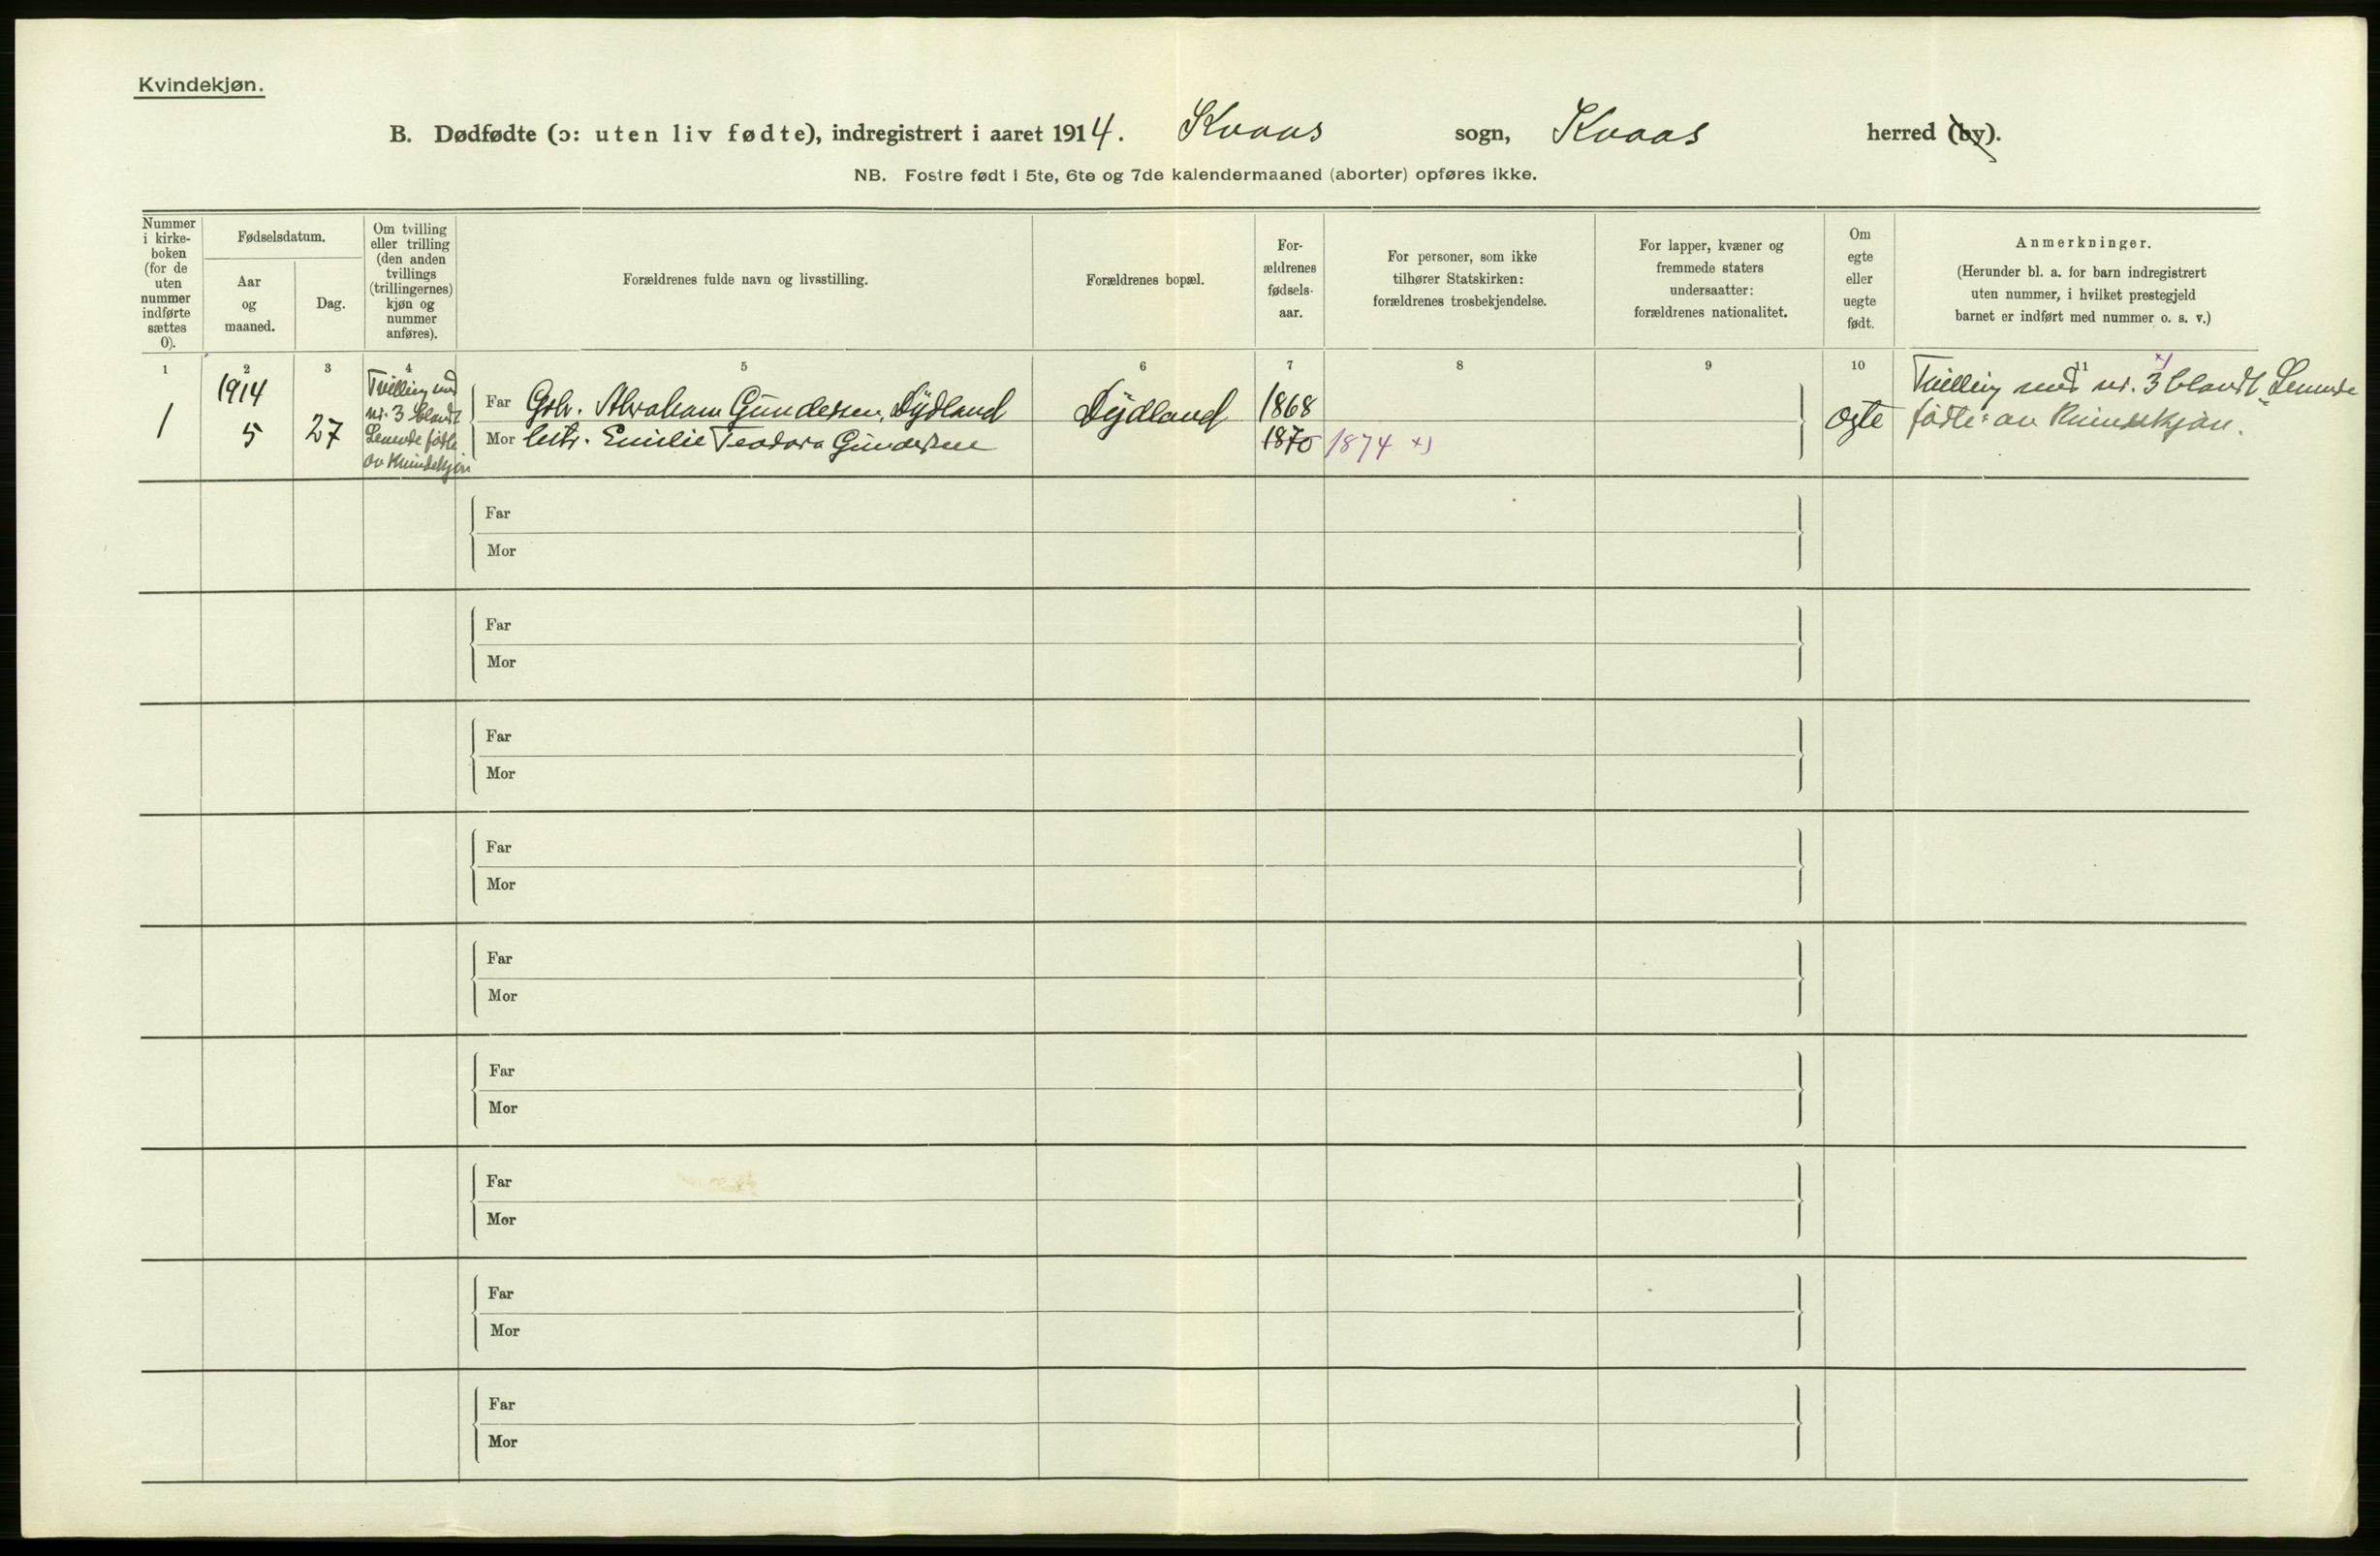 Kvindekjøn.
B. Dødfødte (ɔ: uten liv fødte), indregistrert i aaret 1914. Kvaas sogn, Kvaas herred (by).
NB. Fostre født i 5te, 6te og 7de kalendermaaned (aborter) opføres ikke.
Nummer
i kirke-
boken
(for de
uten
nummer
indførte
sættes
0).
Fødselsdatum.
Aar
og
maaned.
Dag.
Om tvilling
eller trilling
(den anden
tvillings
(trillingernes)
kjøn og
nummer
anføres).
Forældrenes fulde navn og livsstilling.
Forældrenes bopæl.
For-
ældrenes
fødsels-
aar.
For personer, som ikke
tilhører Statskirken:
forældrenes trosbekjendelse.
For lapper, kvæner og
fremmede staters
undersaatter:
forældrenes nationalitet.
Om
egte
eller
uegte
født.
Anmerkninger.
(Herunder bl. a. for barn indregistrert
uten nummer, i hvilket prestegjeld
barnet er indført med nummer o. s. v.)
1 2 3 4 5 6 7 8 9 10 11
1
1914
5
27
Tvilling med
nr. 3 blandt
Levende fødte
av Kvindekjøn
Far Gbr. Abraham Gundersen, Dydland
Mor Emilie Teodora Gundersen
Dydland
1868
1870 1874 x)
egte
Tvilling med nr. 3 x) blandt Levende
fødte av Kvindekjøn.
Far
Mor
Far
Mor
Far
Mor
Far
Mor
Far
Mor
Far
Mor
Far
Mor
Far
Mor
Far
Mor